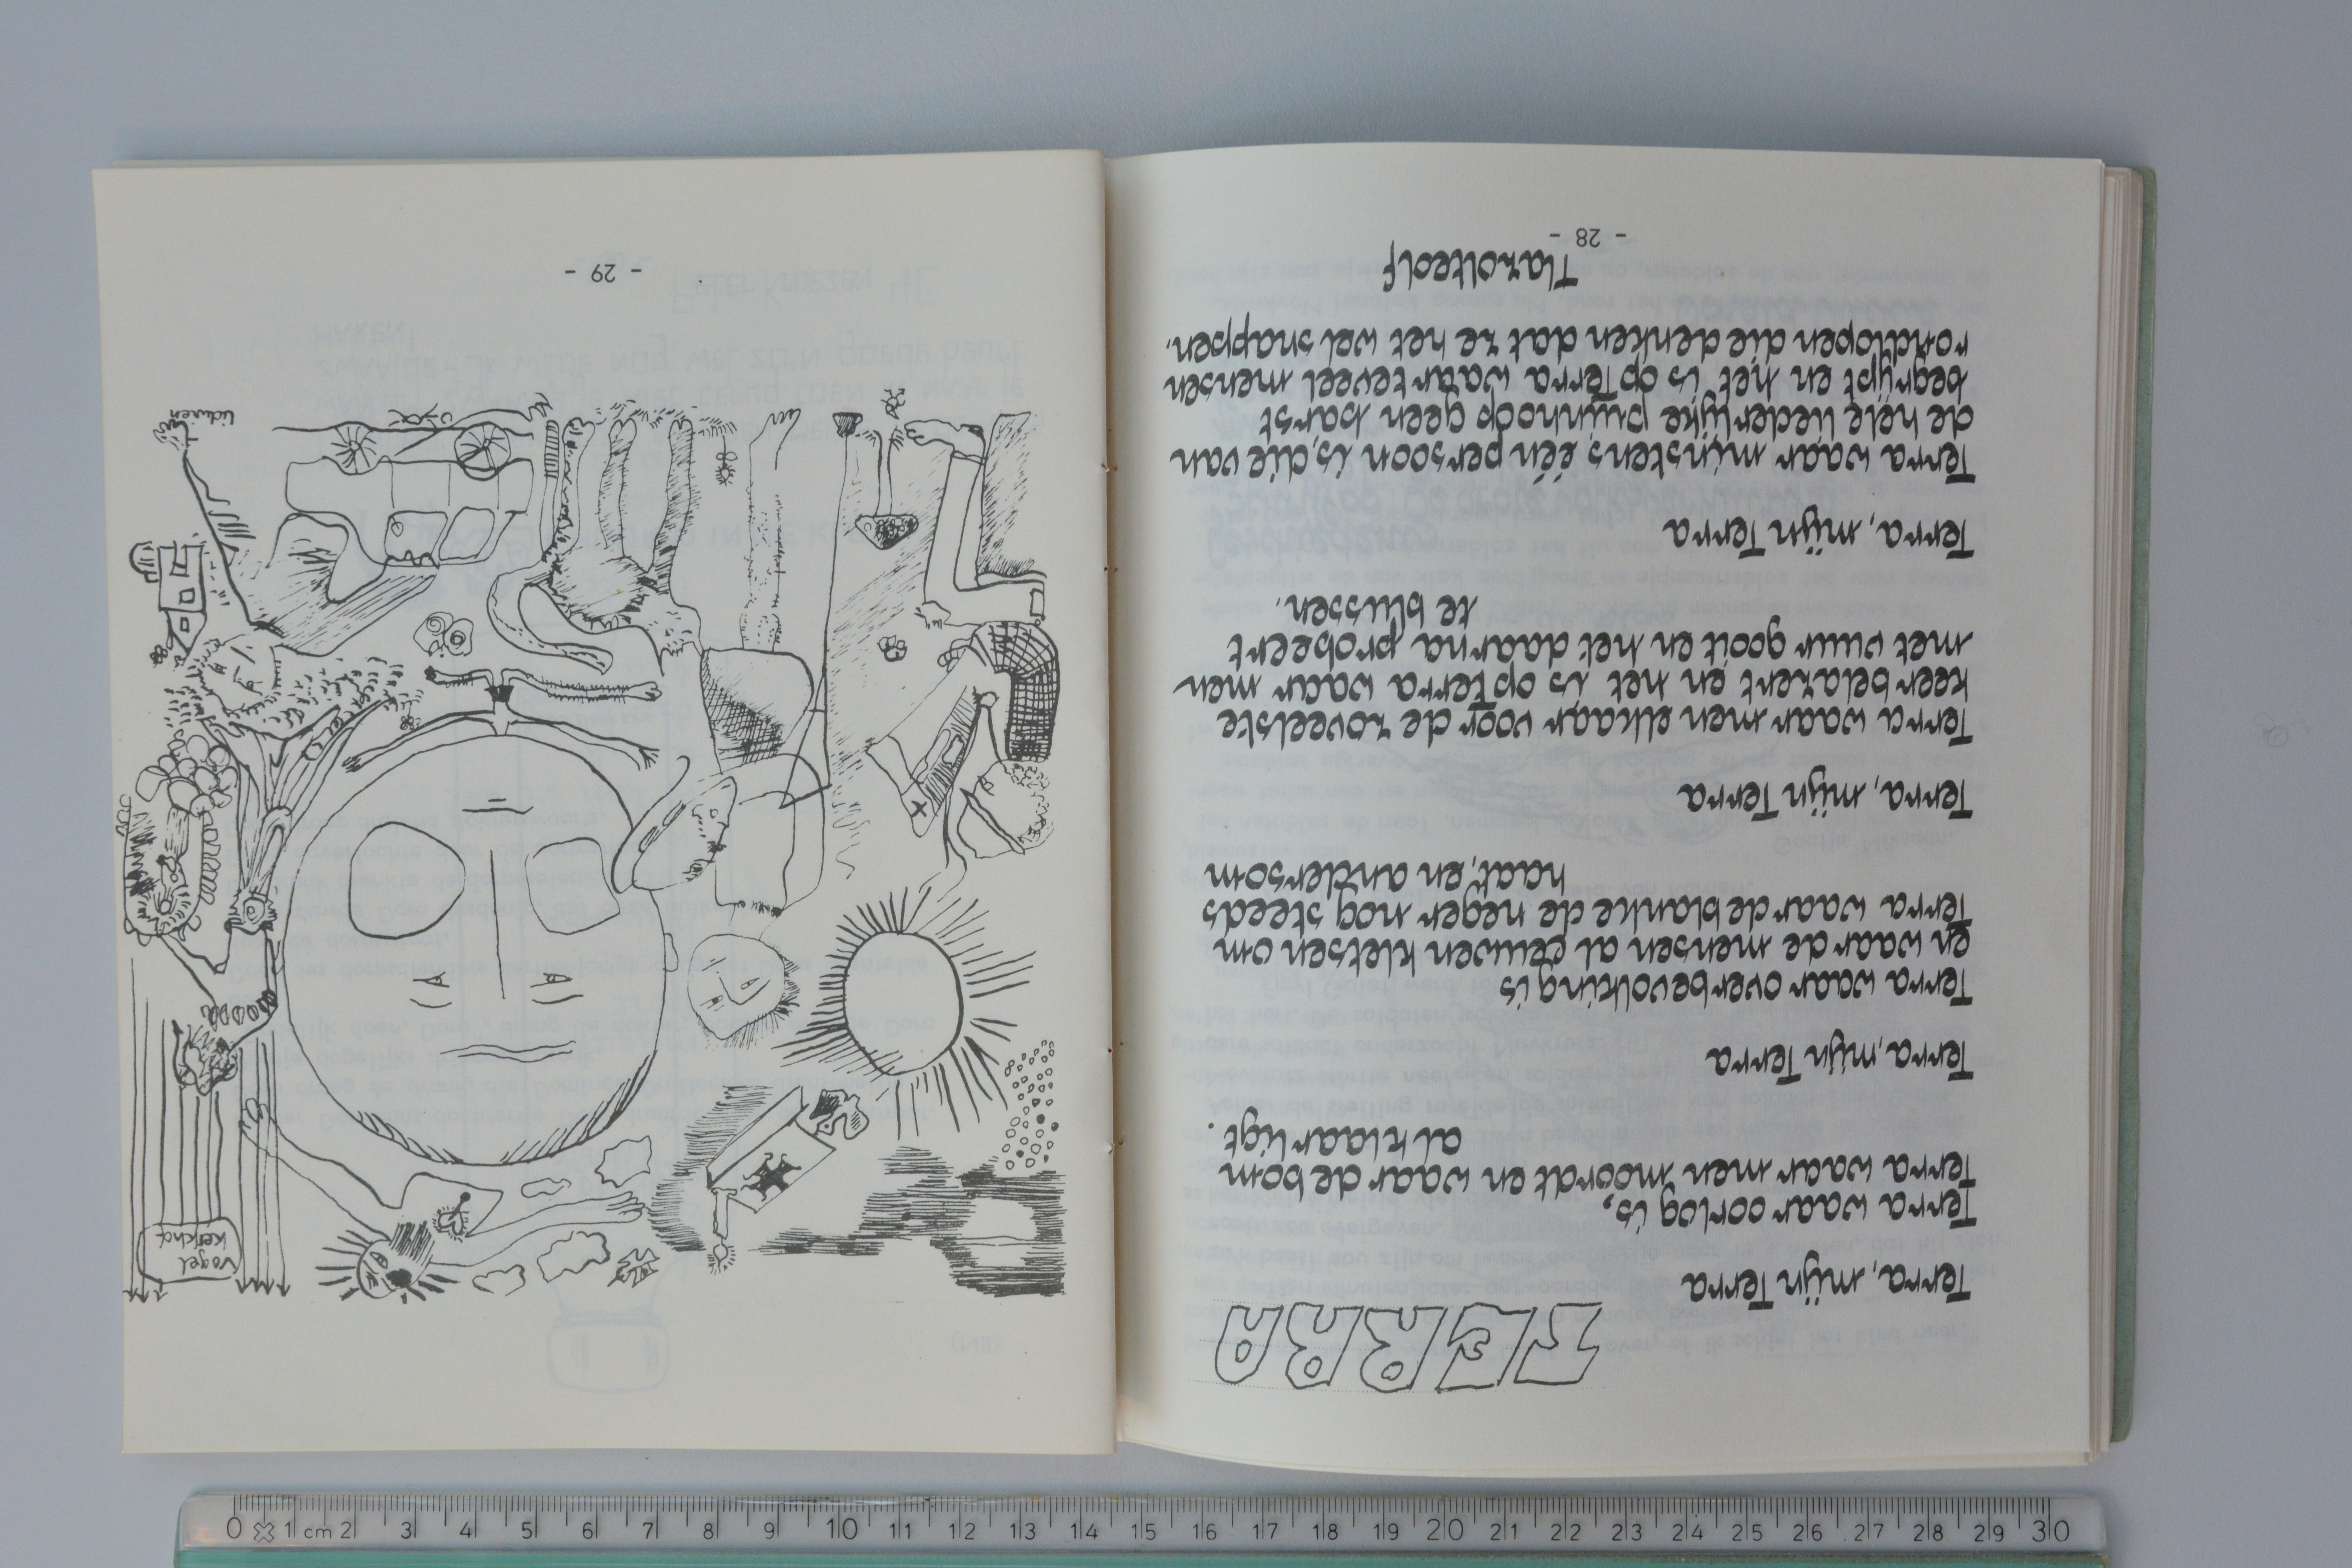 TERRA
Terra, mijn Terra
Terra waar oorlog is,
Terra waar men moordt en waar de bom
al klaar ligt.
Terra, mijn Terra
Terra waar overbevolking is
en waar de mensen al eeuwen kletsen om
Terra waar de blanke de neger nog steeds
haat, en andersom
Terra, mijn Terra
Terra waar men elkaar voor de zoveelste
keer belazert en het is op Terra waar men
met vuur gooit en het daarna probeert
te blussen.
Terra, mijn Terra
Terra waar minstens één persoon is, die van
de hele liederlijke puinhoop geen barst
begrijpt en het is op Terra waar teveel mensen
rondlopen die denken dat ze het wel snappen.
Tlazolteolf
- 28 -
vogel
liduren
- 29 -
0 1 cm 2 3 4 5 6 7 8 9 10 11 12 13 14 15 16 17 18 19 20 21 22 23 24 25 26 27 28 29 30